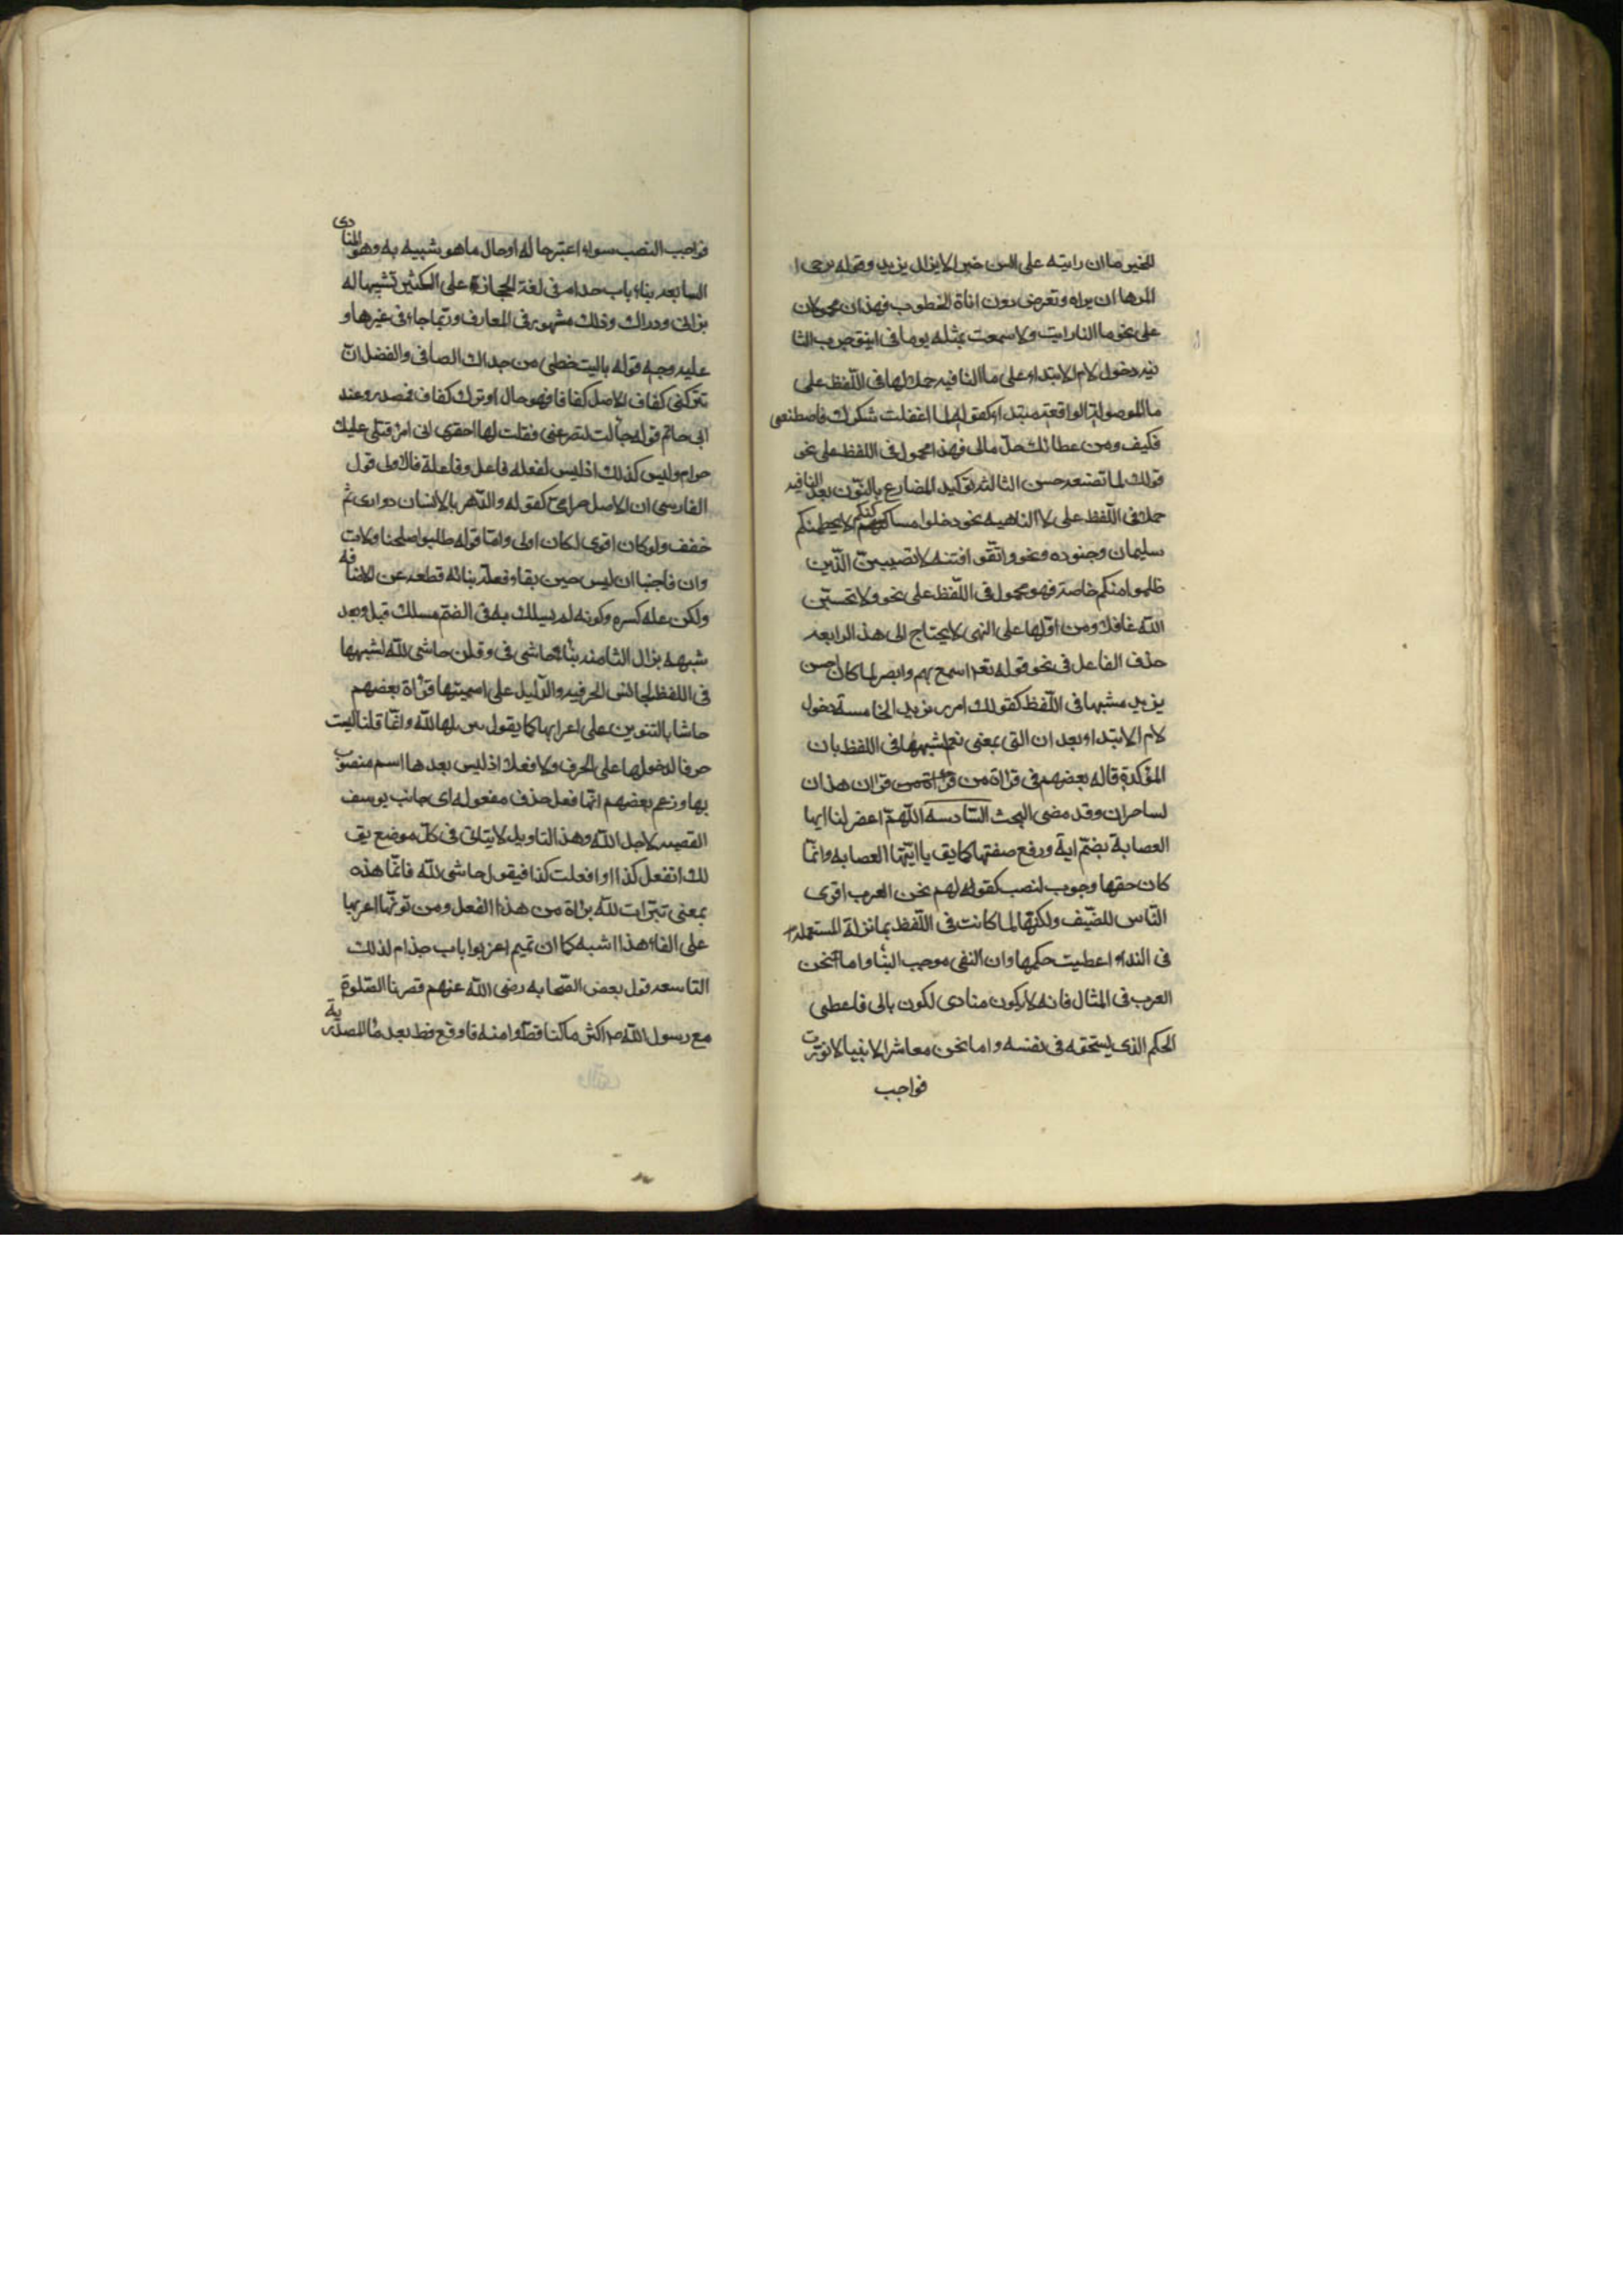 للخير ما ان رايته على السن خير الا يزال يزيد وقوله يرجى ا
المرء ما ان يراه وتعرض دون اناة الخطوب فهذان محمولان
على نحو ما النا رايت ولا سمعت بمثله يوما في اينق جرب الثا
نيه دخول لام الابتداء على ما النافيه حملا لها في اللّفظ على
ما الموصولة الواقعة مبتدا كقوله لما اغفلت شكرك فاصطنعنى
فكيف ومن عطائك جلّ مالى فهذا محمول في اللفظ على نحو
قولك لما تصنعه حسن الثالثه توكيد المضارع بالنّون بعد لا النافيه
حملا في اللّفظ على لا الناهيه نحو دخلوا مساكنكم لا يحطمنكم
سليمان وجنوده ونحو واتّقوا فتنه لا تصيبنّ الّذين
ظلموا منكم خاصة فهو محمول في اللّفظ على نحو ولا تحسبنّ
اللّه غافلا ومن اوّلها على النهى لا يحتاج الى هذا الرابعه
حذف الفاعل في نحو قوله تعه اسمع بهم وابصر لما كان احسن
بزيد مشبها في اللّفظ كقولك امرر بزيد الخامسة دخول
لام الابتداء وبعد ان التى بمعنى نعم لشبهها في اللفظ بان
المؤكدة قاله بعضهم في قراة من قراة من قران هذان
لساحران وقد مضى البحث السّادسه اللّهمّ اغفر لنا ايها
العصابة بضمّ اية ورفع صفتها كما يق يا ايّتها العصابه وانّما
كان حقها وجوب لنصب كقولهم نحن العرب اقرى
النّاس للضّيف ولكنّها لما كانت في اللّفظ بمانزلة المستعملة
في النداء اعطيت حكمها وان النفى موجب البنا واما نحن
العرب في المثال فانه لا يكون منادى لكون بالى فاعطى
الحكم الذى يستحقه في نفسه واما نحن معاشر الانبيا لا نورث
فواجب
فواجب النصب سواء اعتبر حاله او حال ما هو شبيه به وهو المنادى
السابعه بناء باب حدام في لغة الحجاز على الكسر تشبيها له
بنزال ودراك وذلك مشهور في المعارف وربّما جاء في غيرها و
عليه وجه قوله ياليت خطى من جداك الصافى والفضل ان
تتركنى كفاف الاصل كفافا فهو حال او ترك كفاف فمصدر وعند
ابى حاتم قوله جالت لتصرعنى فقلت لها اقصرى انى امرؤ قتلى عليك
حرام وليس كذلك اذ ليس لفعله فاعل وفاعلة فالاولى قول
الفارسى ان الاصل حرامىّ كقوله والدّهر بالانسان دوارى ثم
خفف ولو كان اقوى لكان اولى وامّا قوله طلبوا صلحنا ولات
وان فاجبنا ان ليس حين بقاء فعلة بنائه قطعه عن الاضافه
ولكن عله كسره وكونه لم يسلك به في الضمّ مسلك قبل وبعد
شبهه بنزال الثامنه بناء حاشى في وقلن حاشى للّه لشبهها
في اللفظ بحاشى الحرفيه والدّليل على اسميتها قراة بعضهم
حاشا بالتنوين على اعرابها كما يقول تنزيها للّه وانّما قلنا ليست
حرفا لدخولها على الحرف ولا فعلا اذ ليس بعدها اسم منصوب
بها وزعم بعضهم انّها فعل حذف مفعوله اى جانب يوسف
القصيه لاجل اللّه وهذا التاويل لا يتاتى في كلّ موضع يق
لك اتفعل كذا او افعلت كذا فيقول حاشى للّه فانّما هذه
بمعنى تبرّات للّه براة من هذا الفعل ومن نونّها اعربها
على الغاء هذا الشبه كما ان تميم اعربوا باب حذام لذلك
التاسعه قول بعض الصّحابه رضى اللّه عنهم قصرنا الصّلوة
مع رسول اللّه ص اكثر ما كنا قط وامنه فاوقع قط بعد ما المصدّرية